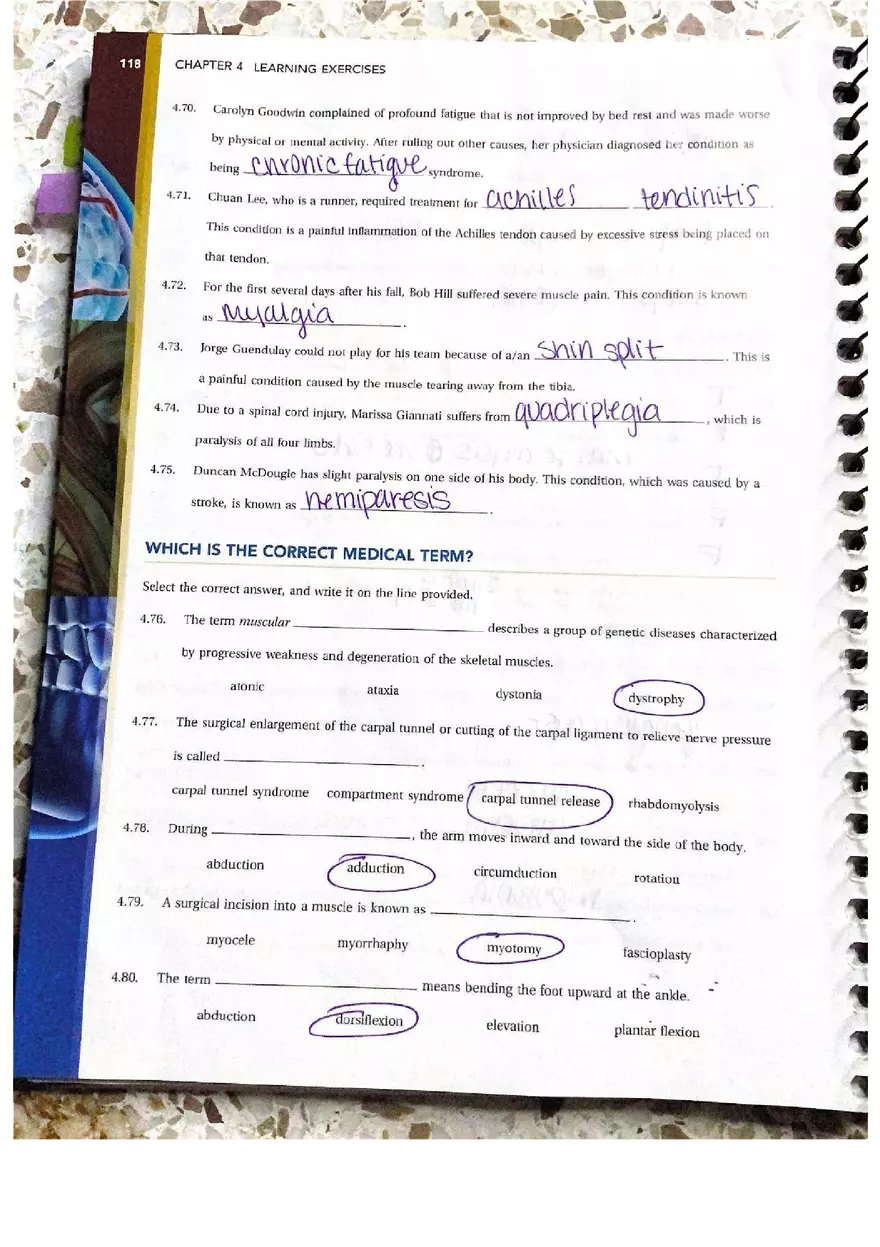 118 CHAPTER 4 LEARNING EXERCISES
4.70. Carolyn Goodwin complained of profound fatigue that is not improved by bed rest and was made worse
by physical or mental activity. After ruling out other causes, her physician diagnosed her condition as
being chronic fatigue syndrome.
4.71. Chuan Lee, who is a runner, required treatment for achilles tendinitis.
This condition is a painful inflammation of the Achilles tendon caused by excessive stress being placed on
that tendon.
4.72. For the first several days after his fall, Bob Hill suffered severe muscle pain. This condition is known
as myalgia.
4.73. Jorge Guendulay could not play for his team because of a/an shin split. This is
a painful condition caused by the muscle tearing away from the tibia.
4.74. Due to a spinal cord injury, Marissa Giannati suffers from quadriplegia, which is
paralysis of all four limbs.
4.75. Duncan McDougle has slight paralysis on one side of his body. This condition, which was caused by a
stroke, is known as hemiparesis.
WHICH IS THE CORRECT MEDICAL TERM?
Select the correct answer, and write it on the line provided.
4.76. The term muscular ______ describes a group of genetic diseases characterized
by progressive weakness and degeneration of the skeletal muscles.
atonic ataxia dystonia dystrophy
4.77. The surgical enlargement of the carpal tunnel or cutting of the carpal ligament to relieve nerve pressure
is called ______.
carpal tunnel syndrome compartment syndrome carpal tunnel release rhabdomyolysis
4.78. During ______, the arm moves inward and toward the side of the body.
abduction adduction circumduction rotation
4.79. A surgical incision into a muscle is known as ______.
myocele myorrhaphy myotomy fascioplasty
4.80. The term ______ means bending the foot upward at the ankle.
abduction dorsiflexion elevation plantar flexion